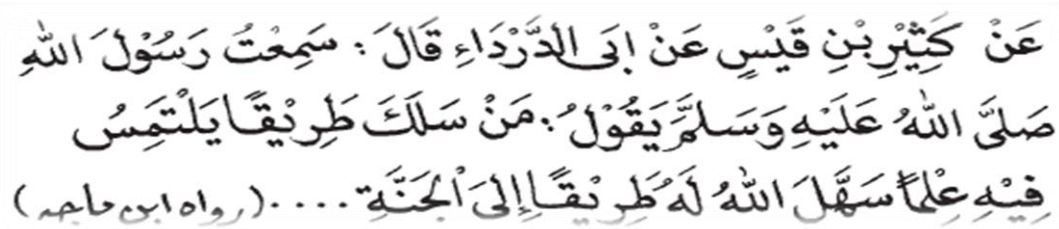 عَنْ كَثِيْرِ بْنِ قَيْسٍ عَنْ اَبِى الدَّرْدَاءِ قَالَ : سَمِعْتُ رَسُوْلَ اللّٰهِ
صَلَّى اللّٰهُ عَلَيْهِ وَسَلَّمَ يَقُوْلُ : مَنْ سَلَكَ طَرِيْقًا يَلْتَمِسُ
فِيْهِ عِلْمًا سَهَّلَ اللّٰهُ لَهُ طَرِيْقًا إِلَى الْجَنَّةِ .... (رواه ابن ماجه)